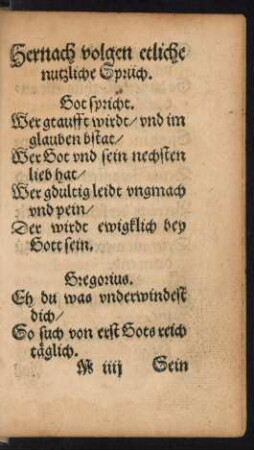 Hernach volgen etliche
nutzliche Sprüch.
Got spricht.
Wer gtaufft wirdt/ vnd im
glauben bstat/
Wer Got vnd sein nechsten
lieb hat/
Wer gdultig leidt vngmach
vnd pein/
Der wirdt ewigklich bey
Gott sein.
Gregorius.
Eh du was vnderwindest
dich/
So such von erst Gots reich
täglich.
M iiij Sein